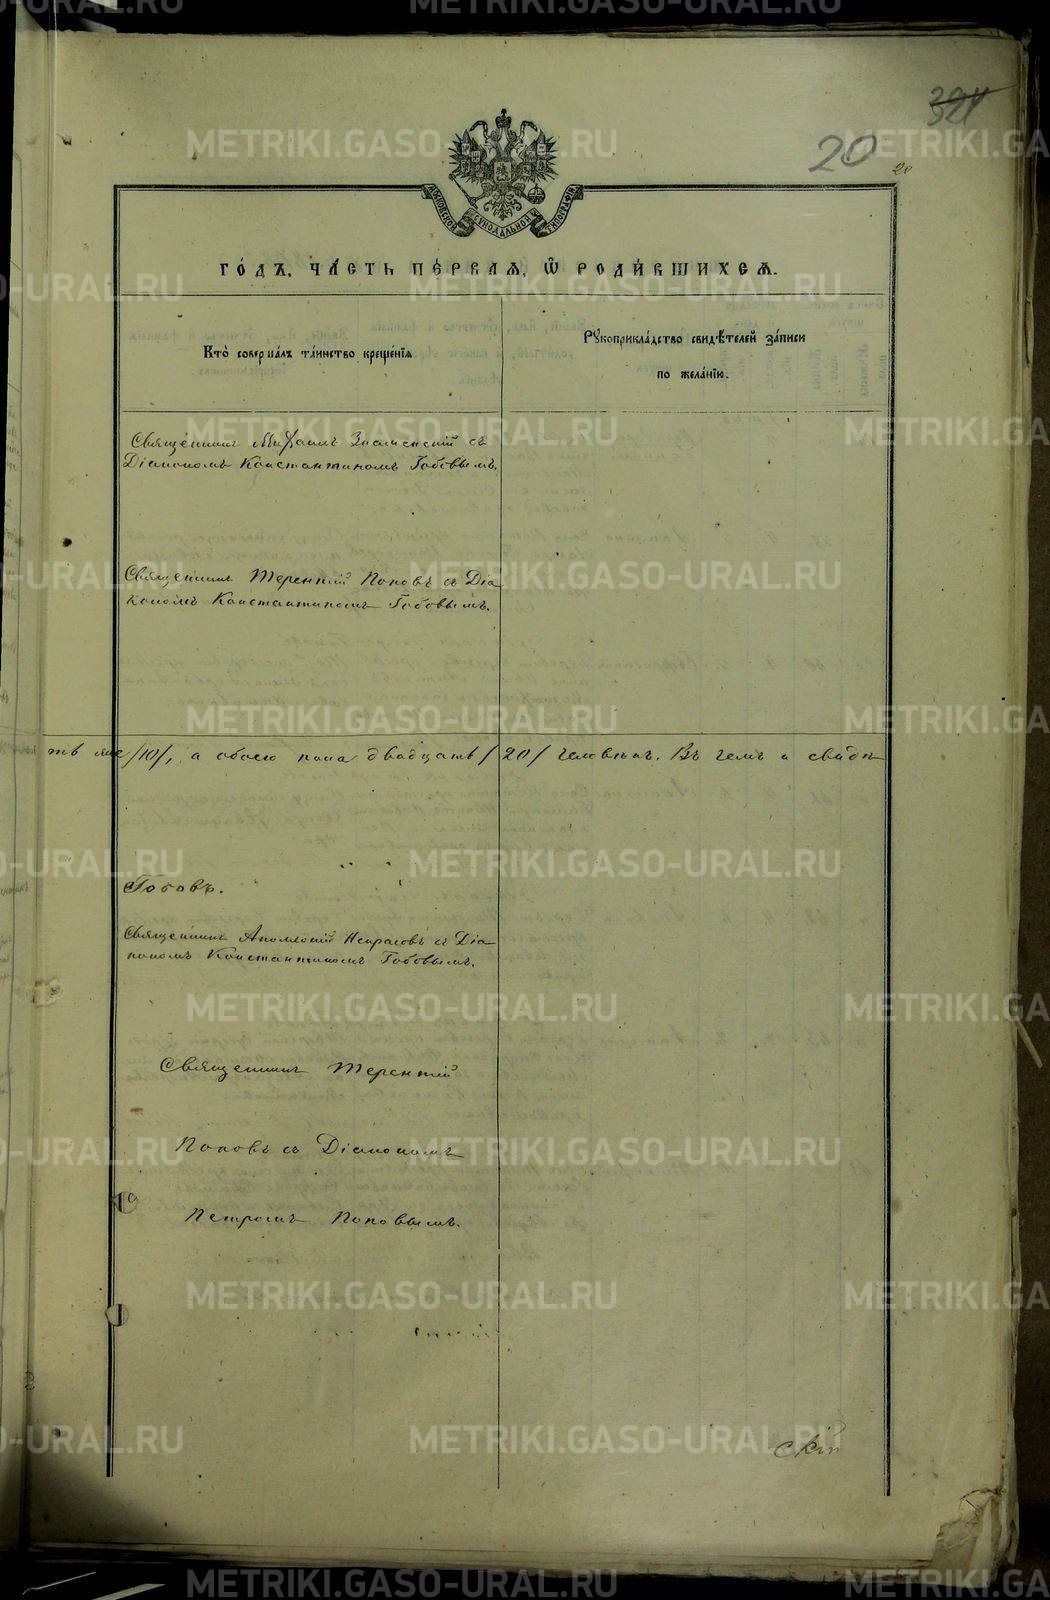 321
20
20
МОСКОВСКОЙ СѴНОДАЛЬНОЙ ТИПОГРАФІИ
ГО́ДЪ, ЧА́СТЬ ПЕ́РВАЯ, Ѿ РОДИ́ВШИХСЯ.
Кто̀ соверша́лъ та́инство креще́нїя
Рꙋкоприкла́дство свидѣ́телей за́писи
по жела́нїю.
Священникъ Михаилъ Знаменскій съ
Діакономъ Константиномъ Гобовымъ.
Священникъ Терентій Поповъ съ Діа
кономъ Константиномъ Гобовымъ.
/10/, а обоего пола двадцать /20/ человѣкъ. Въ чемъ и свидѣ
Гобовъ.
Священникъ Аполлоній Некрасовъ съ Діа
кономъ Константиномъ Гобовымъ.
Священникъ Терентій
Поповъ съ Діакономъ
Петромъ Поповымъ.
скій
METRIKI.GASO-URAL.RU